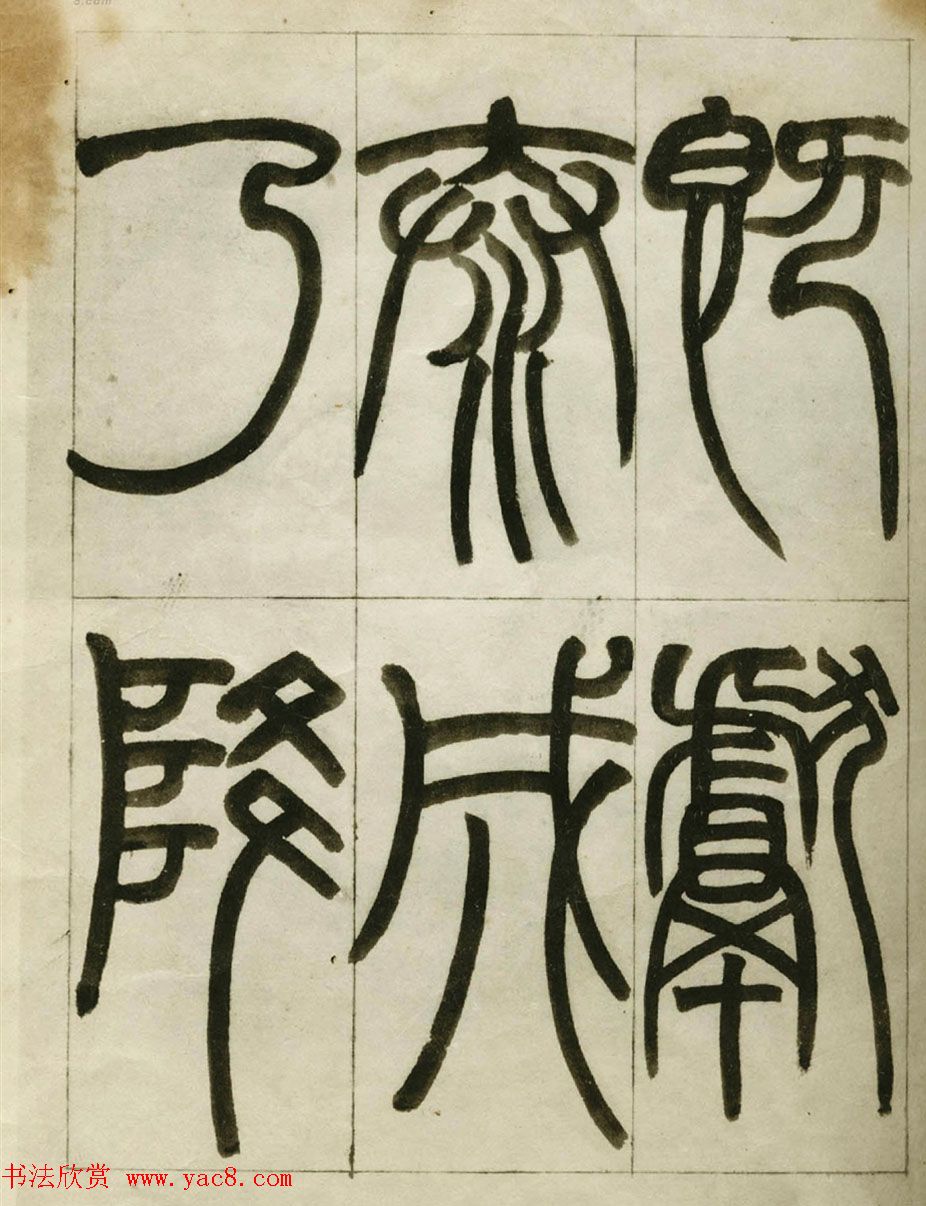 既獻
泰成
乃降
8.com
书法欣赏 www.yac8.com